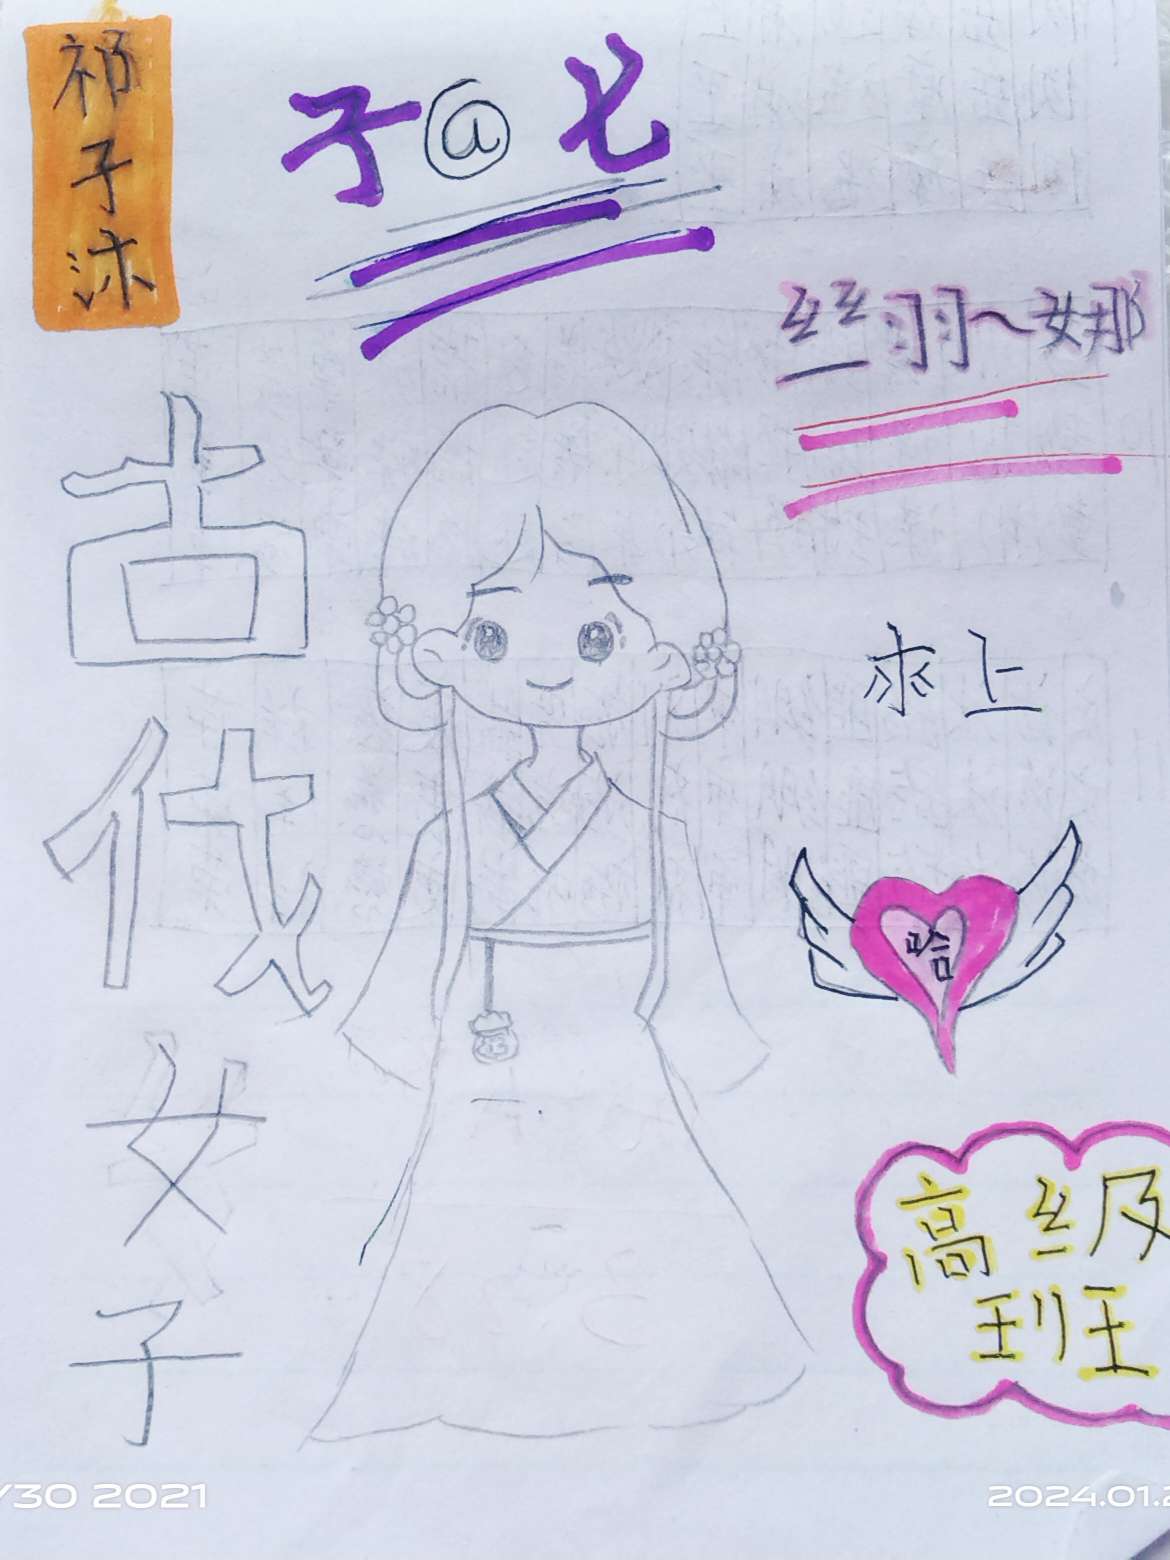 祁子沐
子@七
丝羽~娜
求上
古代女子
哈
高级
班
/30 2021
2024.01.2